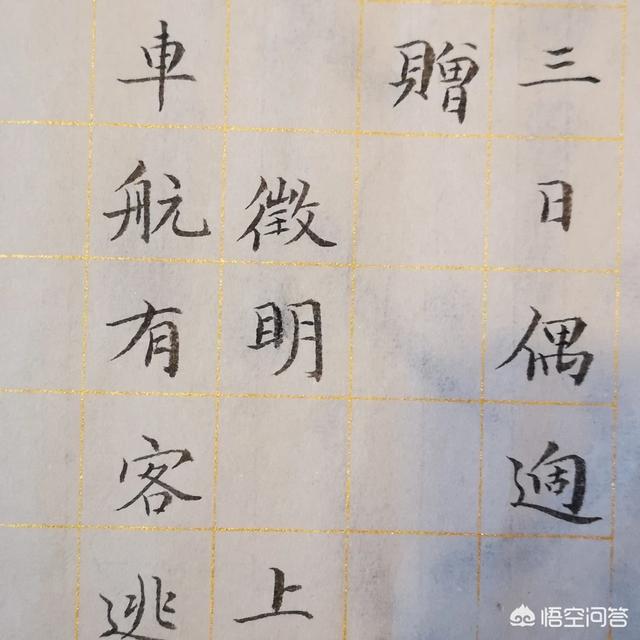 三日偶過
贈
徵明上
車航有客逃
悟空问答